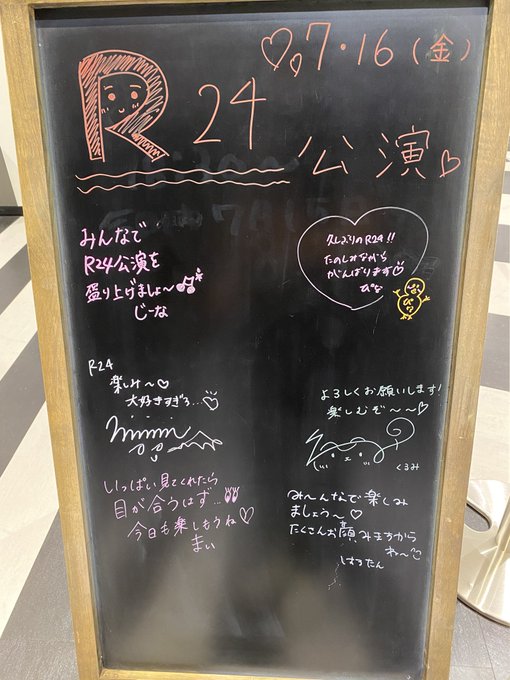 7・16（金）
R24
公演♡
みんなで
R24公演を
盛り上げましょ〜
じーな
久しぶりのR24!!
たのしみながら
がんばります♡
ぴな
R24
楽しみ〜♡
大好きすぎる…♡
よろしくお願いします!
楽しむぞ〜〜♡
くるみ
いっぱい見てくれたら
目が合うはず…
今日も楽しもうね♡
まい
み〜んなで楽しみ
ましょう〜♡
たくさんお顔みますから
ね〜
はろたん